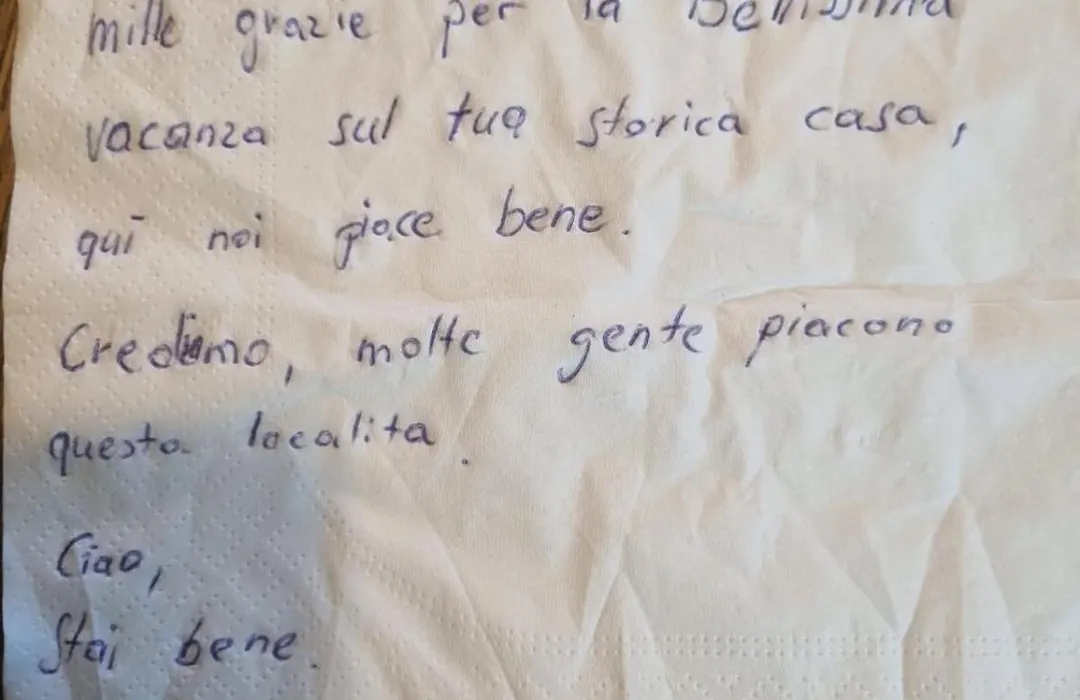 mille grazie per la bellissima
vacanza sul tua storica casa,
qui noi piace bene.
Crediamo, molte gente piacono
questa localita.
Ciao,
Stai bene.